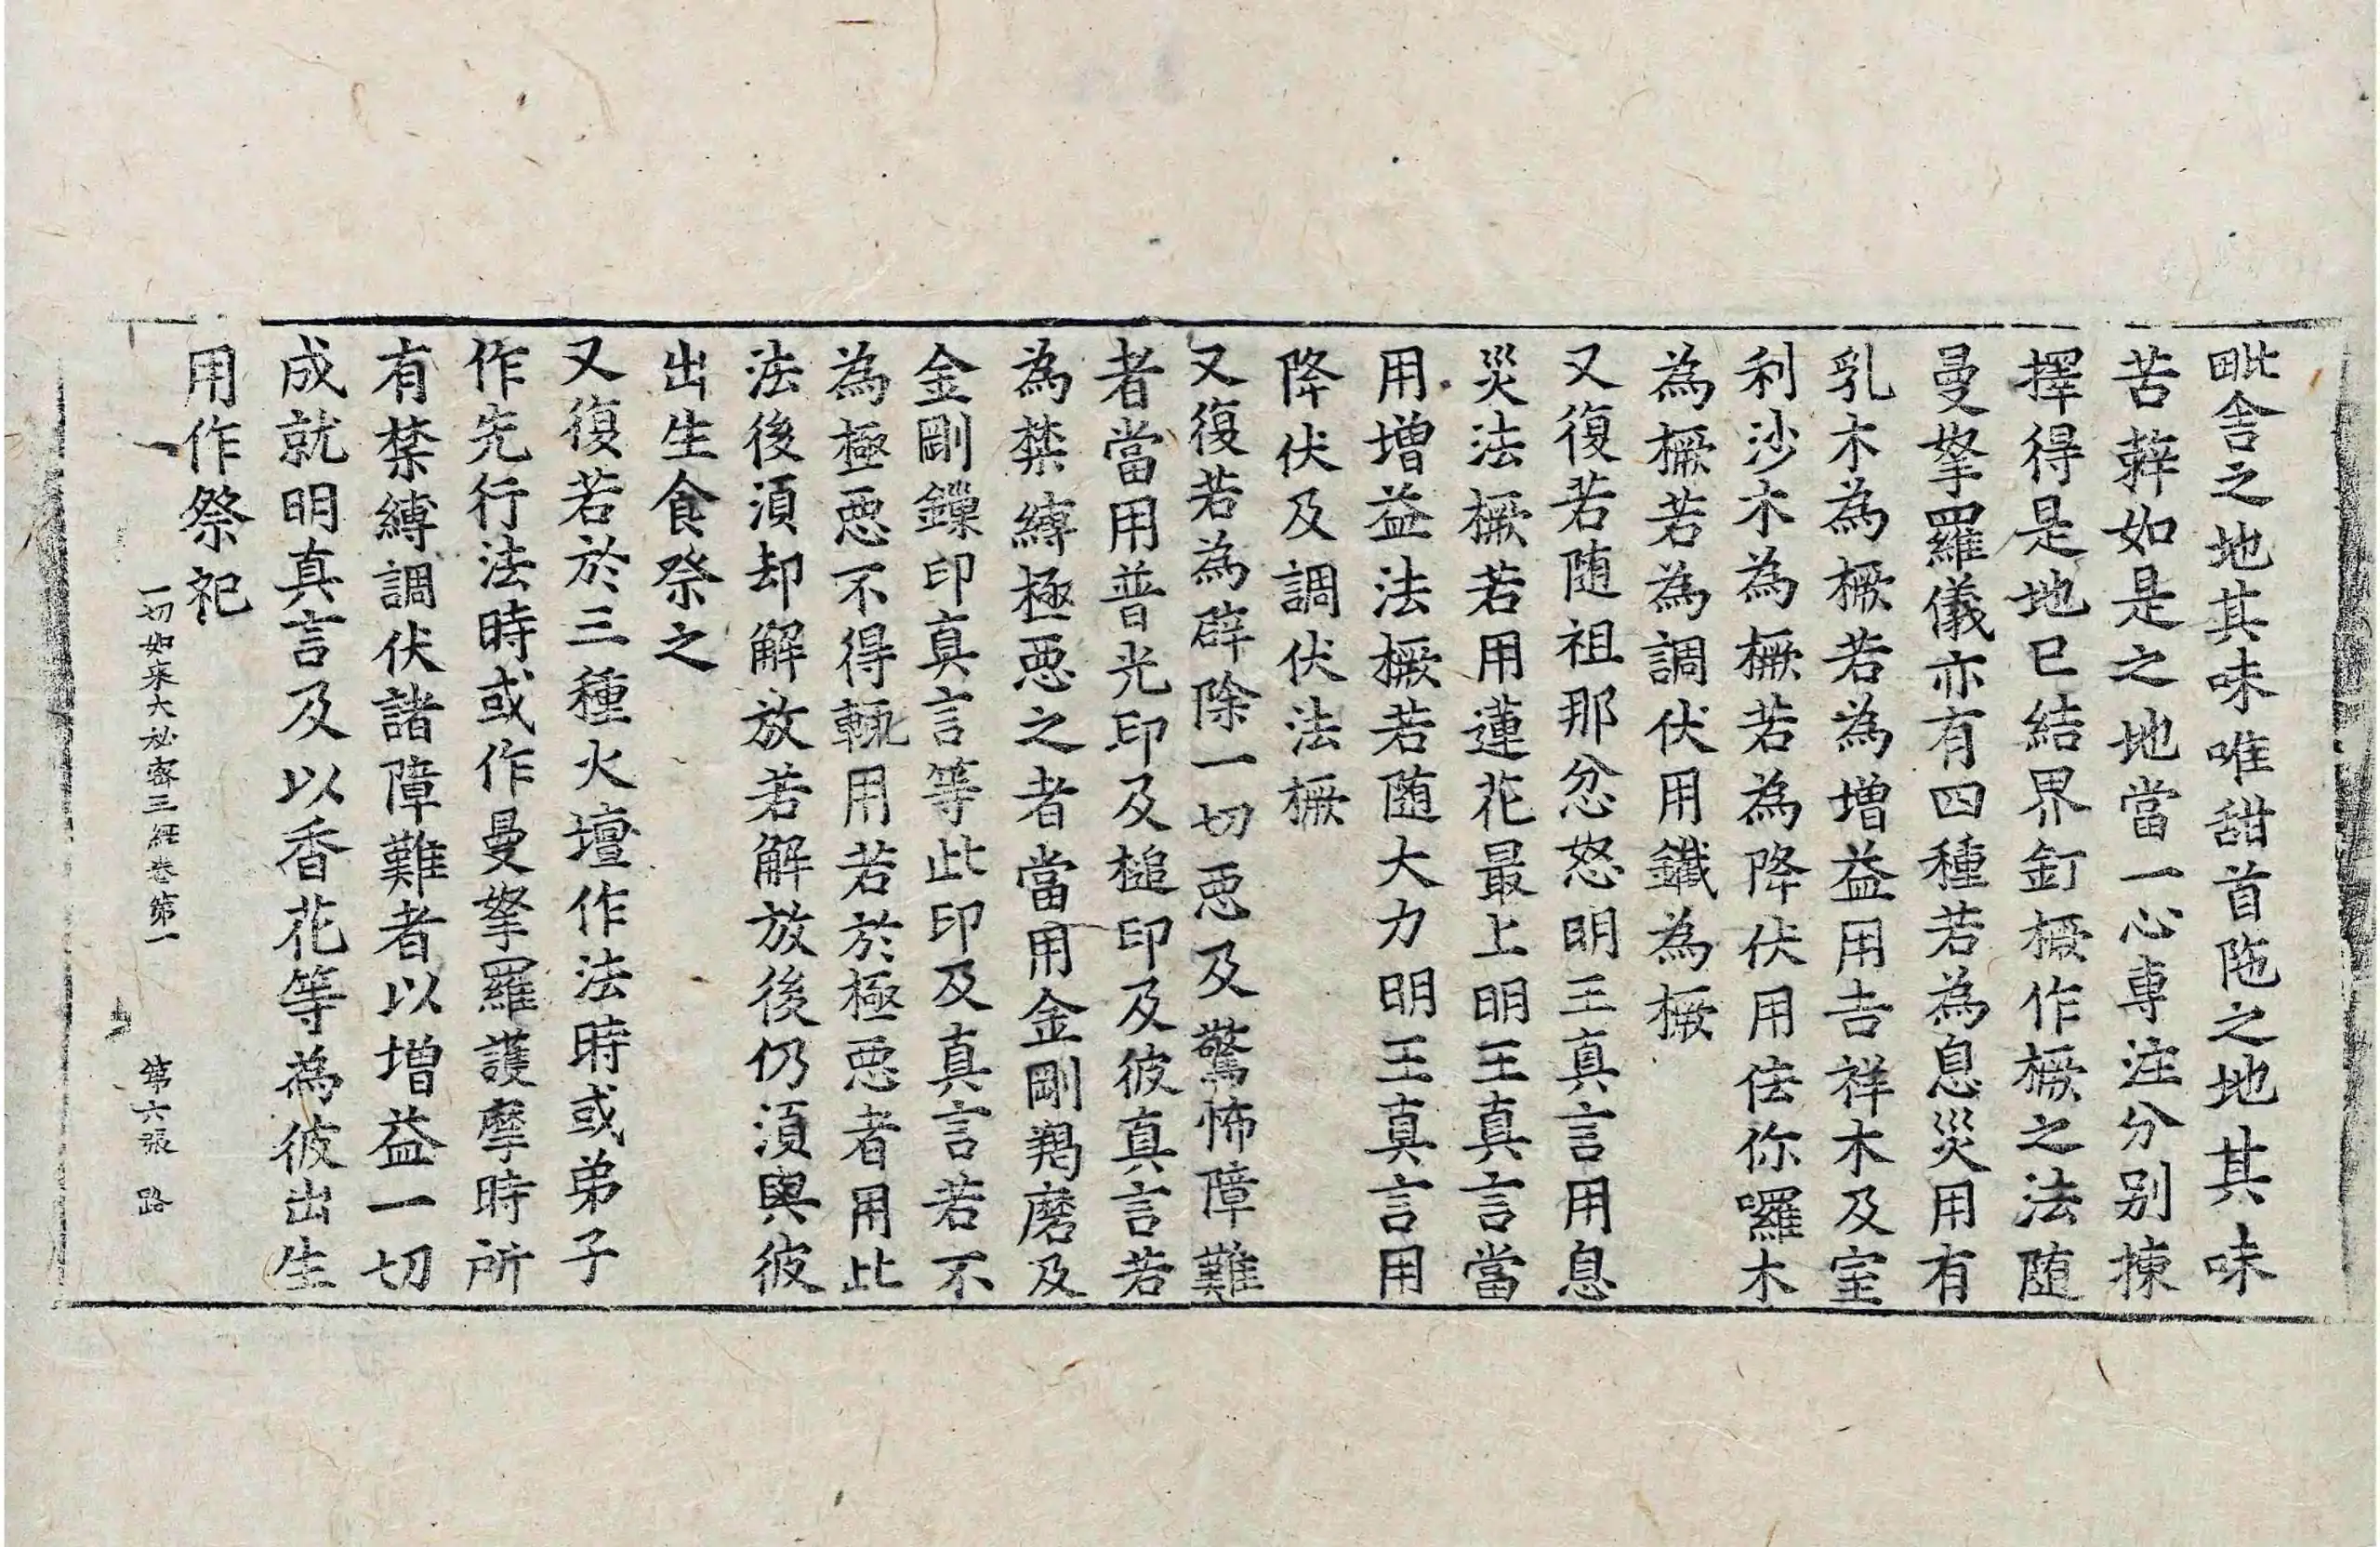 毗舍之地其味唯甜首陁之地其味
苦辢如是之地當一心專注分别揀
擇得是地已結界釘橛作橛之法随
曼拏羅儀亦有四種若為息災用有
乳木為橛若為增益用吉祥木及室
利沙木為橛若為降伏用佉你囉木
為橛若為調伏用鐵為橛
又復若随祖那忿怒明王真言用息
災法橛若用蓮花最上明王真言當
用增益法橛若随大力明王真言用
降伏及調伏法橛
又復若為辟除一切恶及驚怖障難
者當用普光印及槌印及彼真言若
為禁縛極恶之者當用金剛羯磨及
金剛鏁印真言等此印及真言若不
為極恶不得輙用若於極恶者用此
法後湏却解放若解放後仍湏與彼
出生食祭之
又復若於三種火壇作法時或弟子
作先行法時或作曼拏羅護摩時所
有禁縛調伏諸障難者以增益一切
成就明真言及以香花等為彼出生
用作祭祀
一切如来大秘密王經卷第一 第六張 路